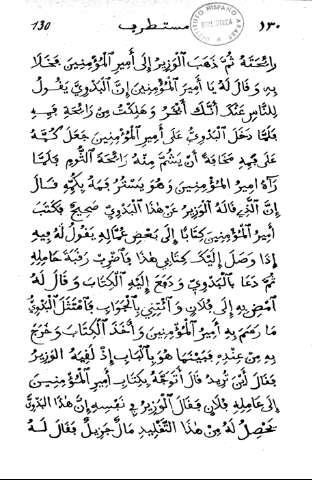 130 مستطرف ١٣٠
رائحته ثم ذهب الوزير إلى أمير المؤمنين فخلا
به وقال له يا أمير المؤمنين إن البدوي يقول
للناس عنك أنك أبخر وهلكت من رائحة فمه
فلما دخل البدوي على أمير المؤمنين جعل كمه
على فمه مخافة أن يشم منه رائحة الثوم فلما
رآه امير المؤمنين وهو يستر فمه بكمه قال
إن الذي قاله الوزير عن هذا البدوي صحيح فكتب
أمير المؤمنين كتابا إلى بعض عماله يقول له فيه
إذا وصل إليك كتابي هذا فاضرب رقبة حامله
ثم دعا بالبدوي ودفع إليه الكتاب وقال له
امض به إلى فلان وائتني بالجواب فامتثل البدوي
ما رسم به أمير المؤمنين وأخذ الكتاب وخرج
به من عنده فبينما هو بالباب إذ لقيه الوزير
فقال أين تريد قال أتوجه بكتاب أمير المؤمنين
إلى عامله فلان فقال الوزير في نفسه إن هذا البدوي
يحصل له من هذا التقليد مال جزيل فقال له